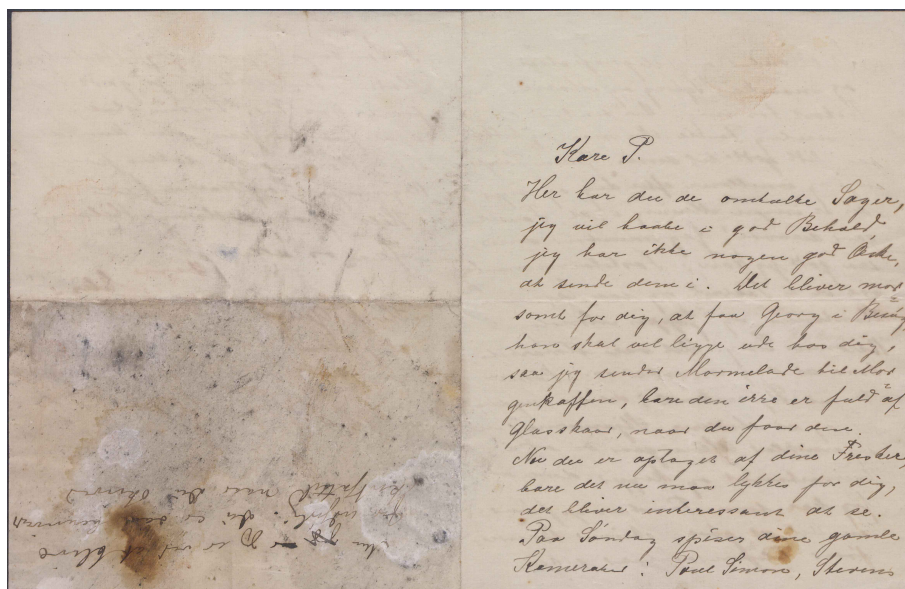 Kære P.
Her har du de omtalte Sager,
jeg vil haabe i god Behold,
jeg har ikke nogen god Æske,
at sende dem i. Det bliver mor=
somt for dig, at faa Georg i
han skal vel ligge ude hos dig,
saa jeg sender Marmelade til Mor
genkaffen, bare den ikke er fuld af
Glasskaar, naar du faar den.
Nu du er optaget af dine Fresker,
bare det nu maa lykkes for dig,
det bliver interessant at se.
Paa Søndag spiser dine gamle
Kamerater: Poul Simon, Stevens
er ved at blive
du er saa
naar du skriver